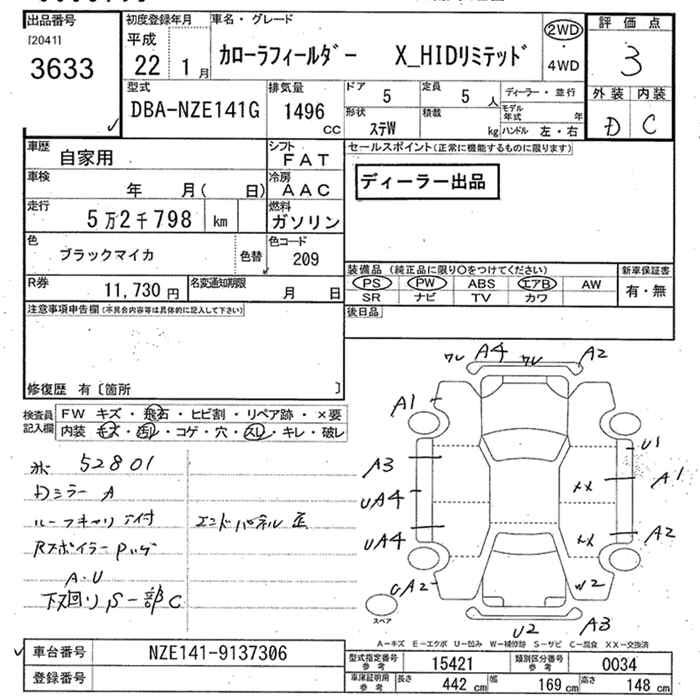 出品番号
[2041]
3633
初度登録年月
平成
22 1月
車名・グレード
カローラフィールダー X_HIDリミテッド
2WD
・
4WD
評価点
3
外装 内装
D C
型式
DBA-NZE141G
排気量
1496
CC
ドア
5
定員
5人
ディーラー・並行
形状
ステW
積載
kg
モデル年式 年
ハンドル 左・右
車歴
自家用
シフト
FAT
車検
年 月( 日)
冷房
AAC
走行
5万2千798 km
燃料
ガソリン
色
ブラックマイカ
色替
色コード
209
R券
11,730円
名変通知期限
月 日
セールスポイント(正常に機能するものに限ります)
ディーラー出品
装備品 (純正品に限り○をつけてください)
新車保証書
PS PW ABS エアB AW
有・無
SR ナビ TV カワ
後日品
注意事項申告欄(不具合内容等は具体的に記入して下さい)
修復歴 有〔箇所 〕
検査員
記入欄
FW キズ・飛石・ヒビ割・リペア跡・×要
内装 キズ・汚レ・コゲ・穴・スレ・キレ・破レ
52801
Dミラー A
ルーフキャリア付
エンドパネル 歪
Rスポイラー
A・U
下廻りS 一部C
ワレ A4 ワレ A2
A1
U1
A3
A1
UA4
××
UA4
A2
××
UA2
W2
スペア
U2 A3
A−キズ E−エクボ U−凹み W−補修跡 S−サビ C−腐食 XX−交換済
車台番号
NZE141-9137306
登録番号
型式指定番号
参考
15421
類別区分番号
参考
0034
車庫証明用
参考
長さ
442 cm
幅
169 cm
高さ
148 cm